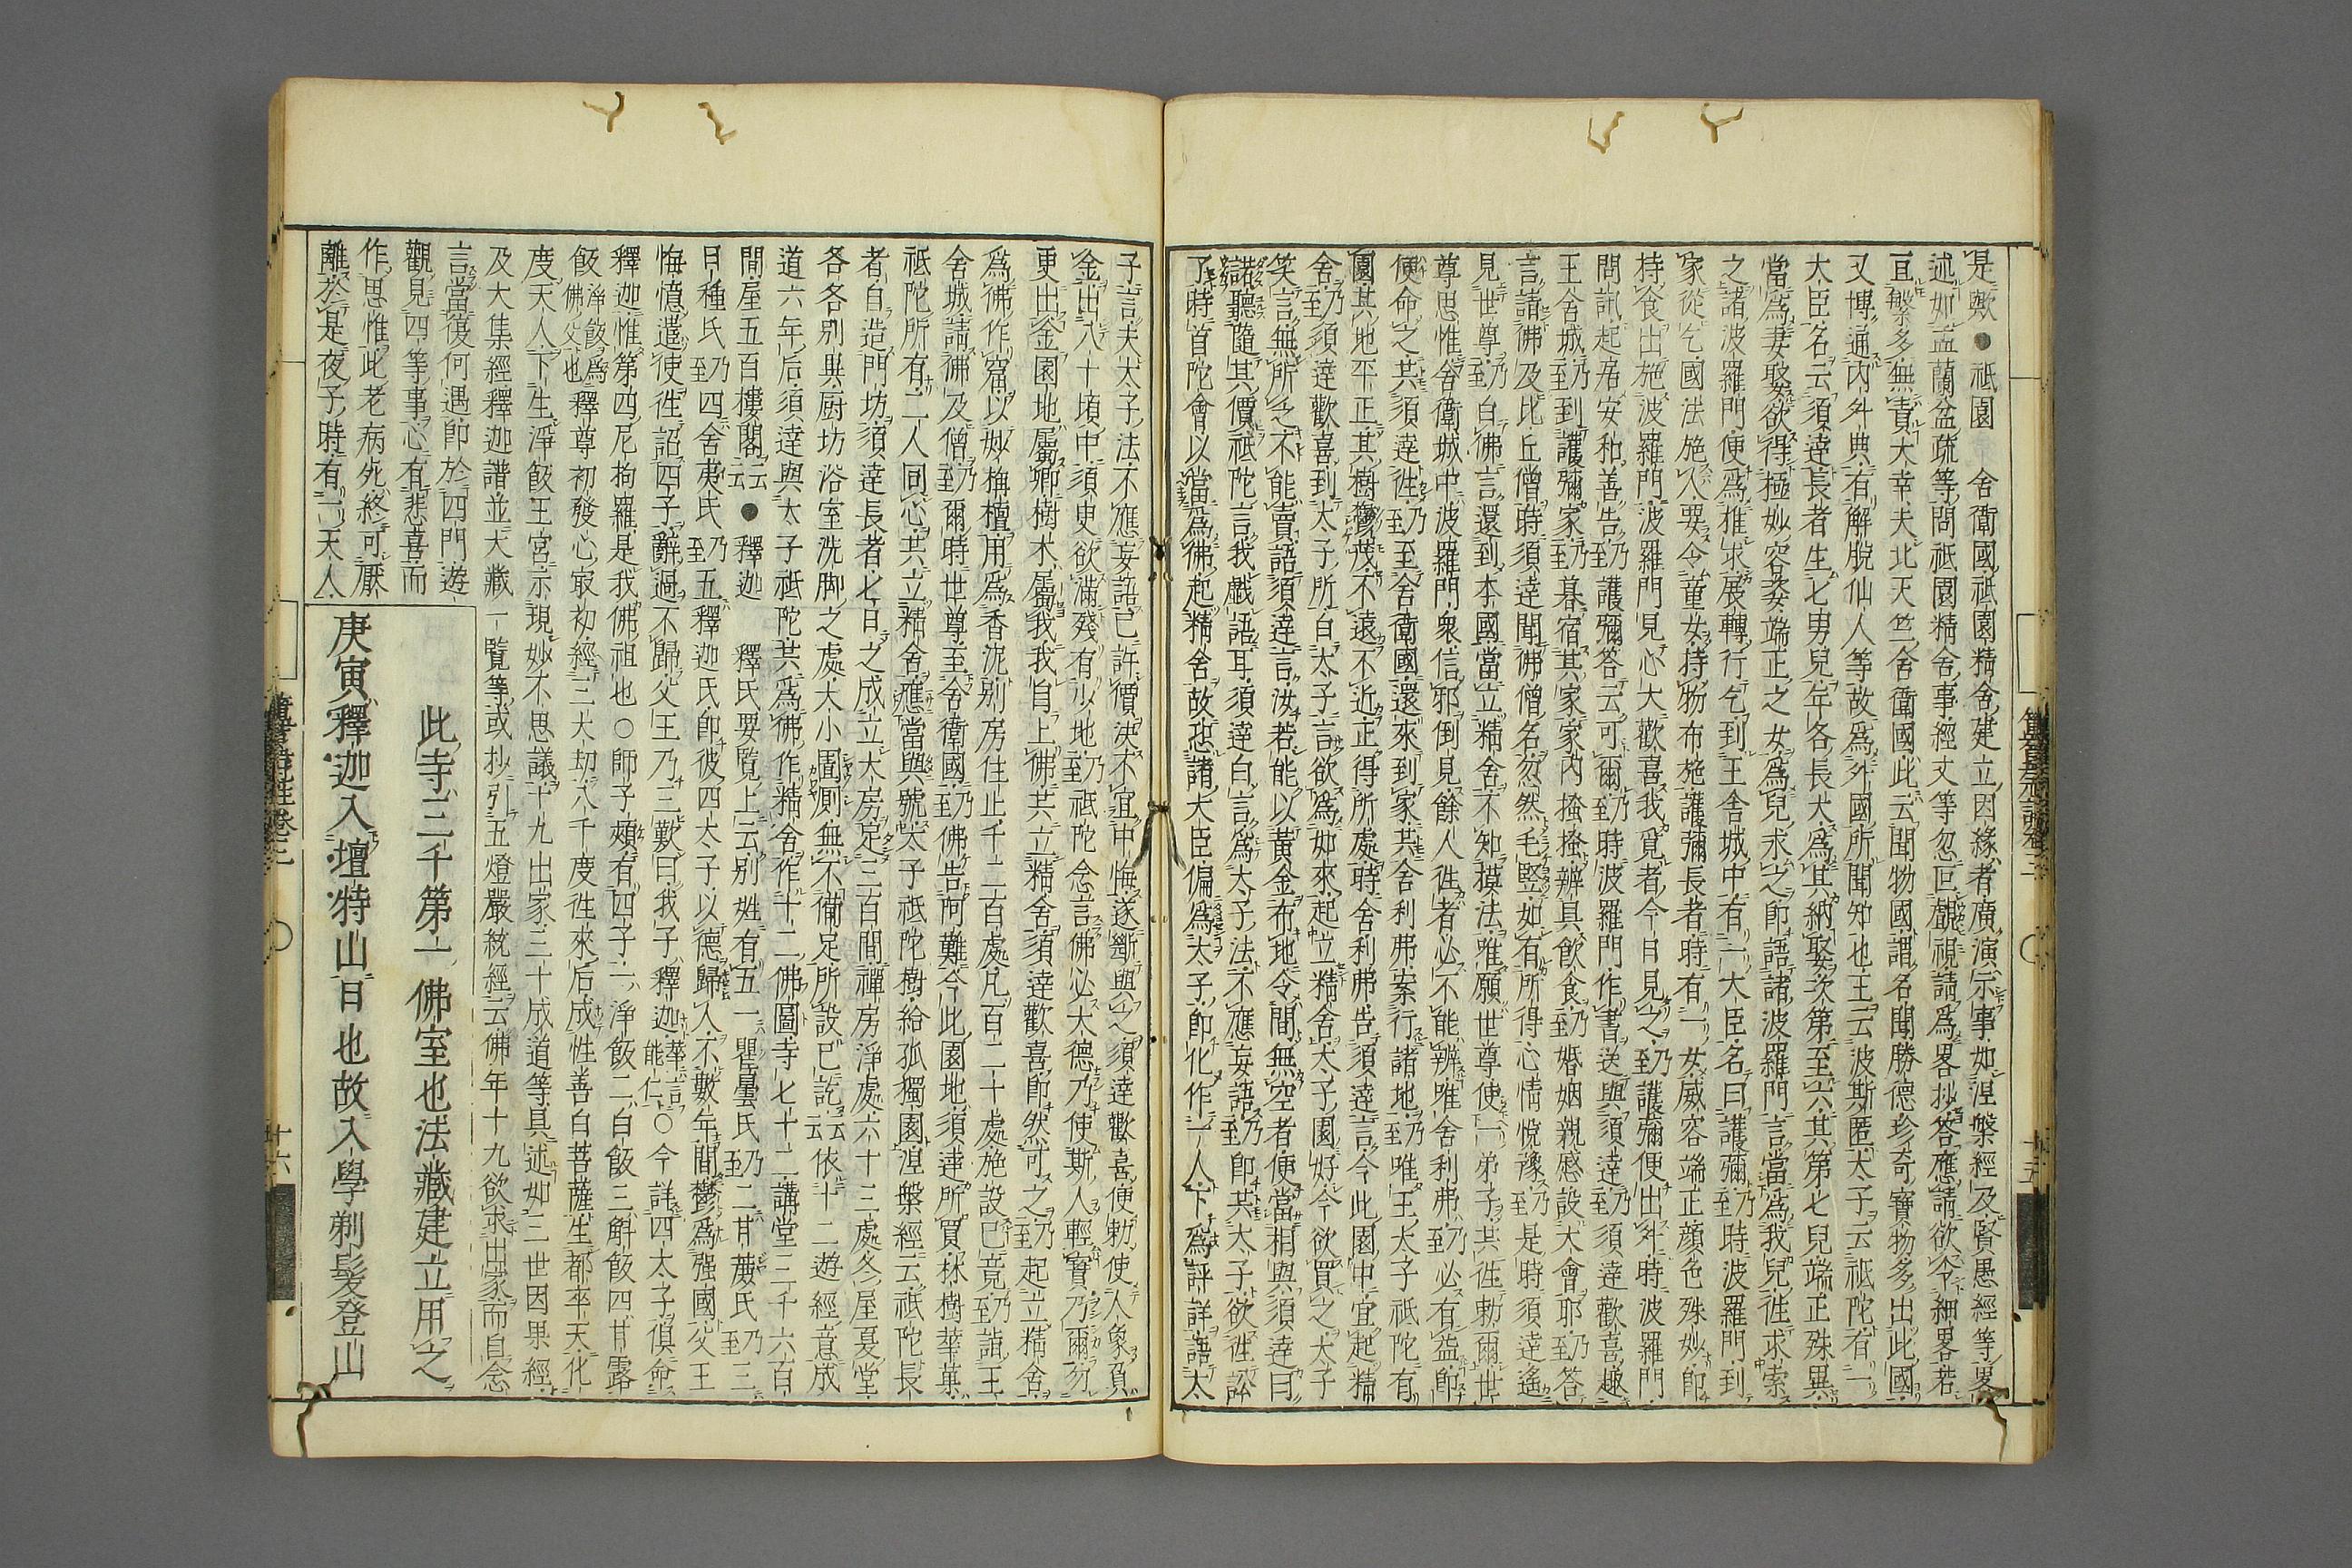 是歟●祇園　舍衛國祇園精舍建立因緣者廣演示事如涅槃經及賢愚經等畧
述如盂蘭盆疏等問祇園精舍事經文等忽叵覼視請爲畧抄答應請欲令細畧若
亘繁多無責大幸夫北天竺舍衛國此云聞物國謂名聞勝德珍奇寶物多出此國
又博通內外典有解脫仙人等故爲外國所聞知也王云波斯匿太子云祇陀有一
大臣名云須達長者生七男兒年各長大爲其納娶次第至六其第七兒端正殊異
當爲妻娶欲得極妙容姿端正之女爲兒求之卽語諸波羅門言當爲我兒徃求索
之諸波羅門便爲推求展轉行乞到王舍城中有一大臣名曰護彌乃至時波羅門到
家從乞國法施人要令童女持物布施護彌長者時有一女威容端正顏色殊妙卽
持食出施波羅門波羅門見心大歡喜我覓者今日見之乃至護彌便出外時波羅門
問訊起居安和善吿乃至護彌答云可爾乃至時波羅門作書送與須達乃至須達歡喜趣
王舍城乃至到護彌家乃至暮宿其家家內搔搔辨具飮食乃至婚姻親感設大會耶乃至答
言請佛及比丘僧時須達聞佛僧名忽然毛竪如有所得心情悅豫乃至是時須達遙
見世尊乃至白佛言還到本國當立精舍不知摸法唯願世尊使一弟子共徃勅爾世
尊思惟舍衛城中波羅門衆信邪倒見餘人徃者必不能辨唯舍利弗乃至必有益卽
便命之共須達徃乃至至舍衛國還來到家共舍利弗案行諸地乃至唯王太子祇陀有
園其地平正其樹欝茂不遠不近正得所處時舍利弗告須達言今此園中宜起精
舍乃至須達歡喜到太子所白太子言欲爲如來起立精舍太子園好今欲買之太子
笑言無所乏不能賣語須達言汝若能以黃金布地令間無空者便當相與須達曰
諾聽隨其價祇陀言我戲語耳須達白言爲太子法不應妄語乃至卽共太子欲徃訟
了時首陀會以當爲佛起精舍故恐諸大臣偏爲太子卽化作一人下爲評詳語太
子言夫太子法不應妄語已許價決不宜中悔遂斷與之須達歡喜便勅使人象負
金出八十頃中須臾欲滿殘有少地乃至祇陀念言佛必大德乃使斯人輕寶乃爾勿
更出金園地屬卿樹木屬我我自上佛共立精舍須達歡喜卽然可之乃至起立精舍
爲佛作窟以妙栴檀用爲香泥別房住止千二百處凡百二十處施設已竟乃至詣王
舍城請佛及僧乃至爾時世尊至舍衛國乃至佛告阿難今此園地須達所買林樹華菓
祇陀所有二人同心共立精舍應當與號太子祇陀樹給孤獨園涅槃經云祇陀長
者自造門坊須達長者七日之成立大房足三百間禪房淨處六十三處冬屋夏堂
各各別與厨坊浴室洗脚之處大小圊厠無不備足所設已訖云云依十二遊經意成
道六年后須達與太子祇陀共爲佛作精舍作十二佛圖寺七十二講堂三千六百
間屋五百樓閣云云●釋迦　釋氏要覽上云別姓有五一瞿曇氏乃至二甘蔗氏乃至三
日種氏乃至四舍夷氏乃至五釋迦氏卽彼四太子以德歸人不數年間鬱爲强國父王
悔憶遣使徃詔四子辭過不歸父王乃三歎曰我子釋迦華言能仁○今詳四太子俱命
釋迦惟第四尼拘羅是我佛祖也○師子頰有四子一淨飯二白飯三斛飯四甘露
飯淨飯爲佛父也釋尊初發心㝡初經三大劫八千度徃來后成性善白菩薩生都卒天化
度天人下生淨飯王宮示現妙不思議十九出家三十成道等具述如三世因果經
及大集經釋迦譜並大藏一覽等或抄引五燈嚴統經云佛年十九欲求出家而自念
言當復何遇卽於四門遊
觀見四等事心有悲喜而
作思惟此老病死終可厭
離於是夜子時有一天人
此寺三千第一佛室也法藏建立用之
庚寅釋迦入壇特山日也故入學剃髮登山